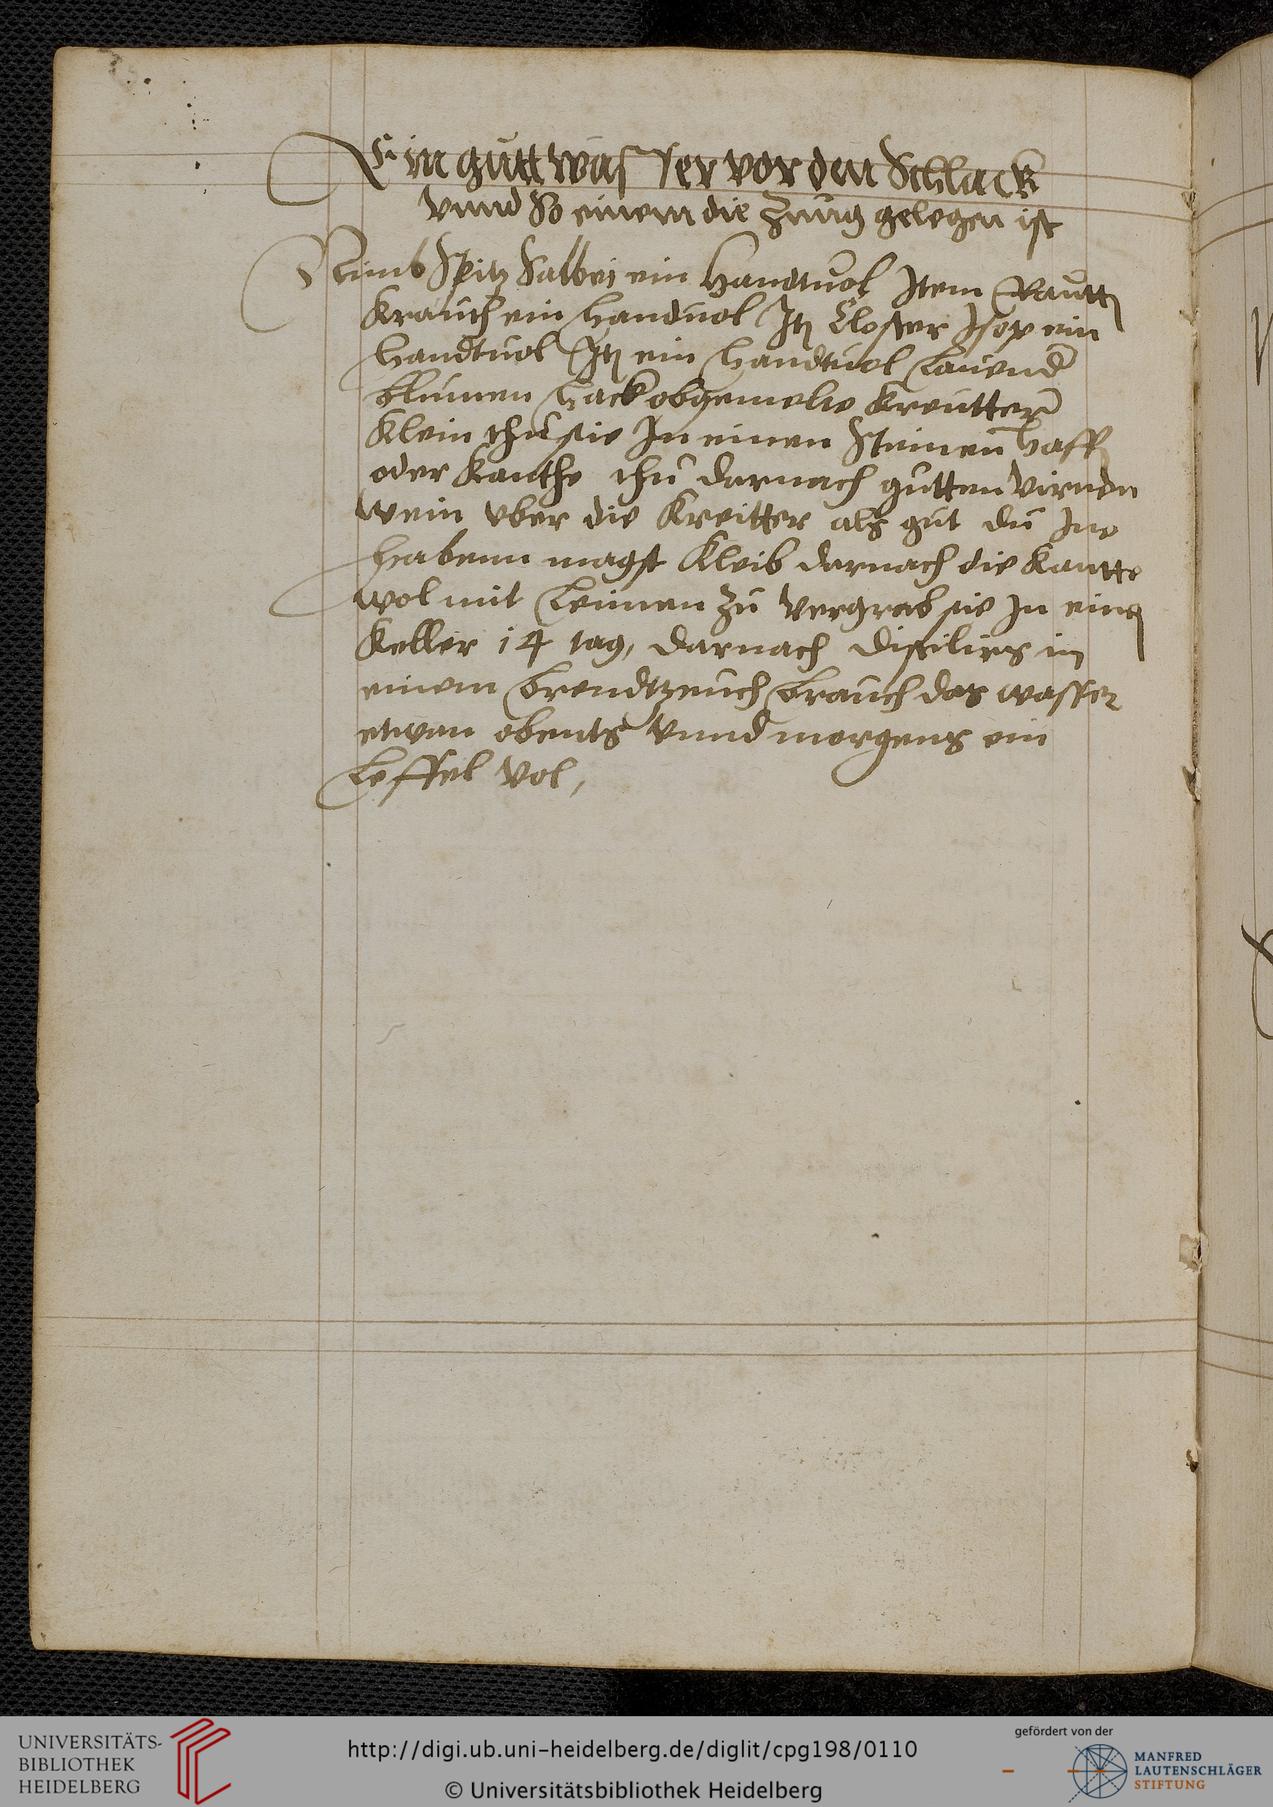 Ein gutt wasser vor den Schlack
vnnd So einem die Zung gelegen ist
Nimb Spitz Salbej ein Handtuol Item Rautt
Kraucht ein handuol Itt Closter Isop ein
handtuol Itt ein handtuol Lauend
blumen hack obgemelte Kreutter
Klein thu sie In einen Steinen haff
oder Kanthe thu darnach gutten virnen
wein vber die Kreitter als gut du Ine
habenn magst Kleib darnach die Kantte
wol mit Leimen zu vergrab sie In eine
Keller 14 tag, darnach distilirs in
einem brendtzeuch brauch das wasser
etwan obents vnnd morgens ein
Leffel vol,
UNIVERSITÄTS-
BIBLIOTHEK
HEIDELBERG
http://digi.ub.uni-heidelberg.de/diglit/cpg198/0110
© Universitätsbibliothek Heidelberg
gefördert von der
MANFRED
LAUTENSCHLÄGER
STIFTUNG